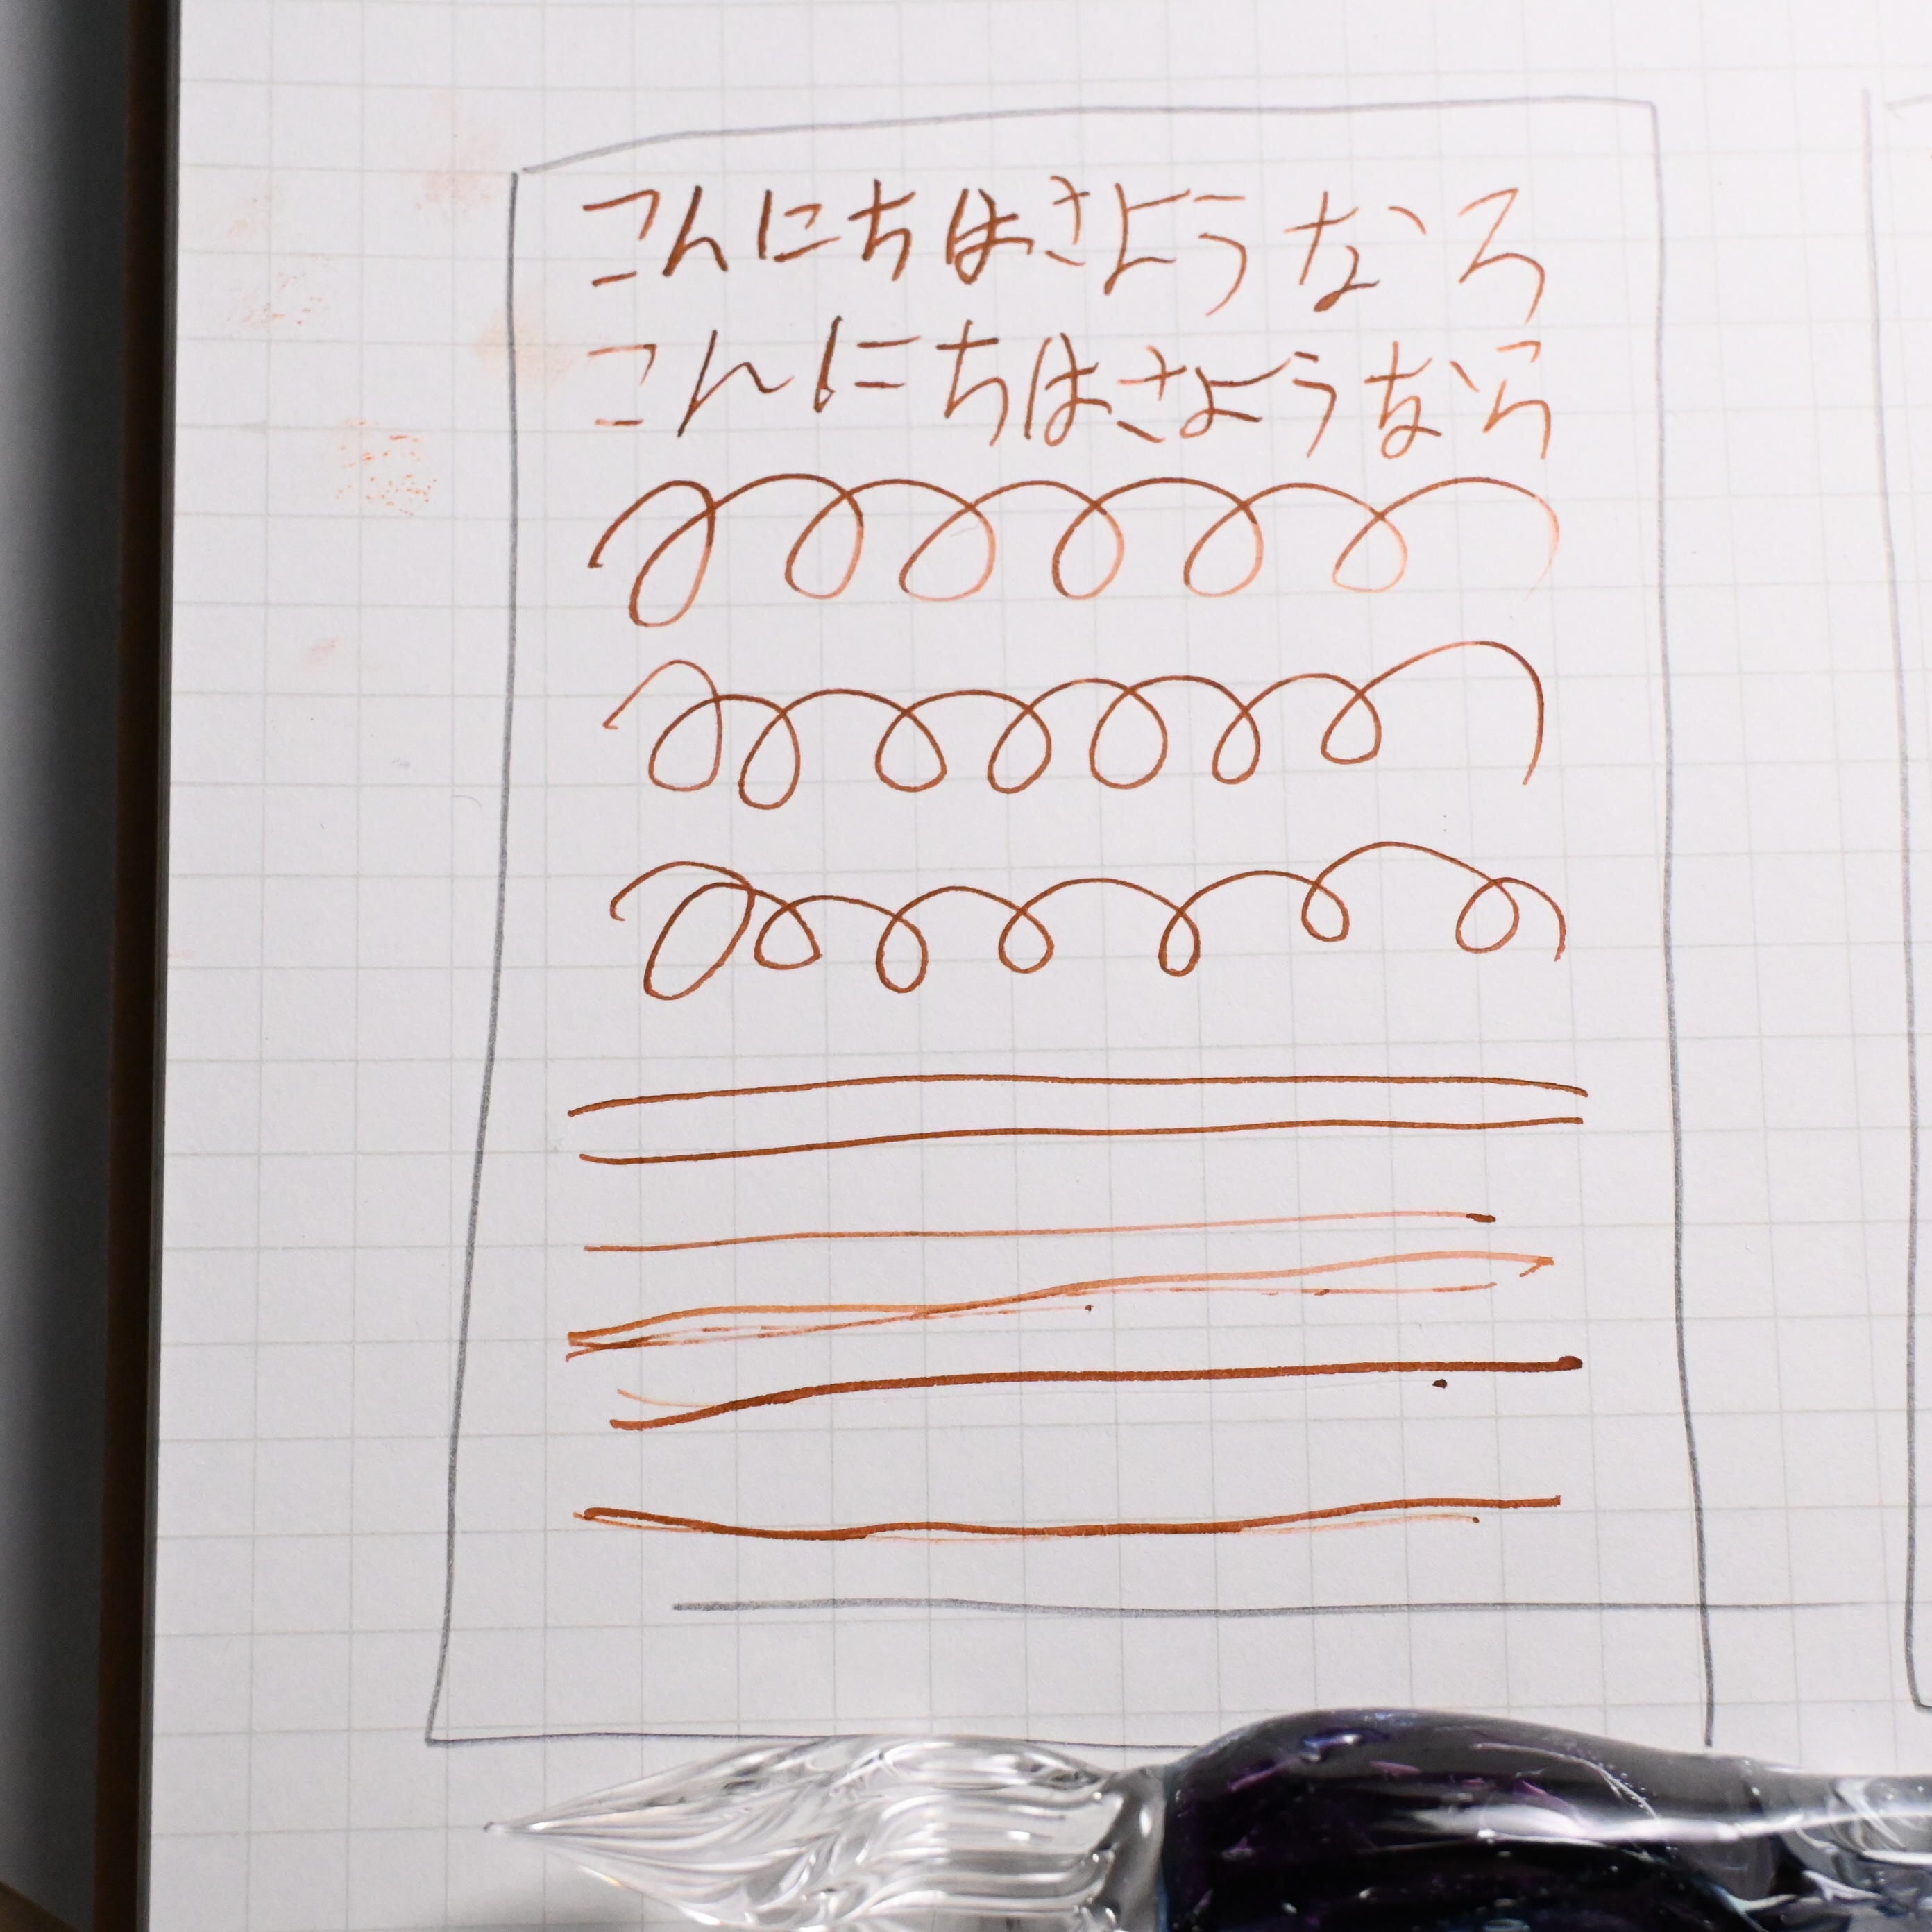 こんにちはさようなら
こんにちはさようなら